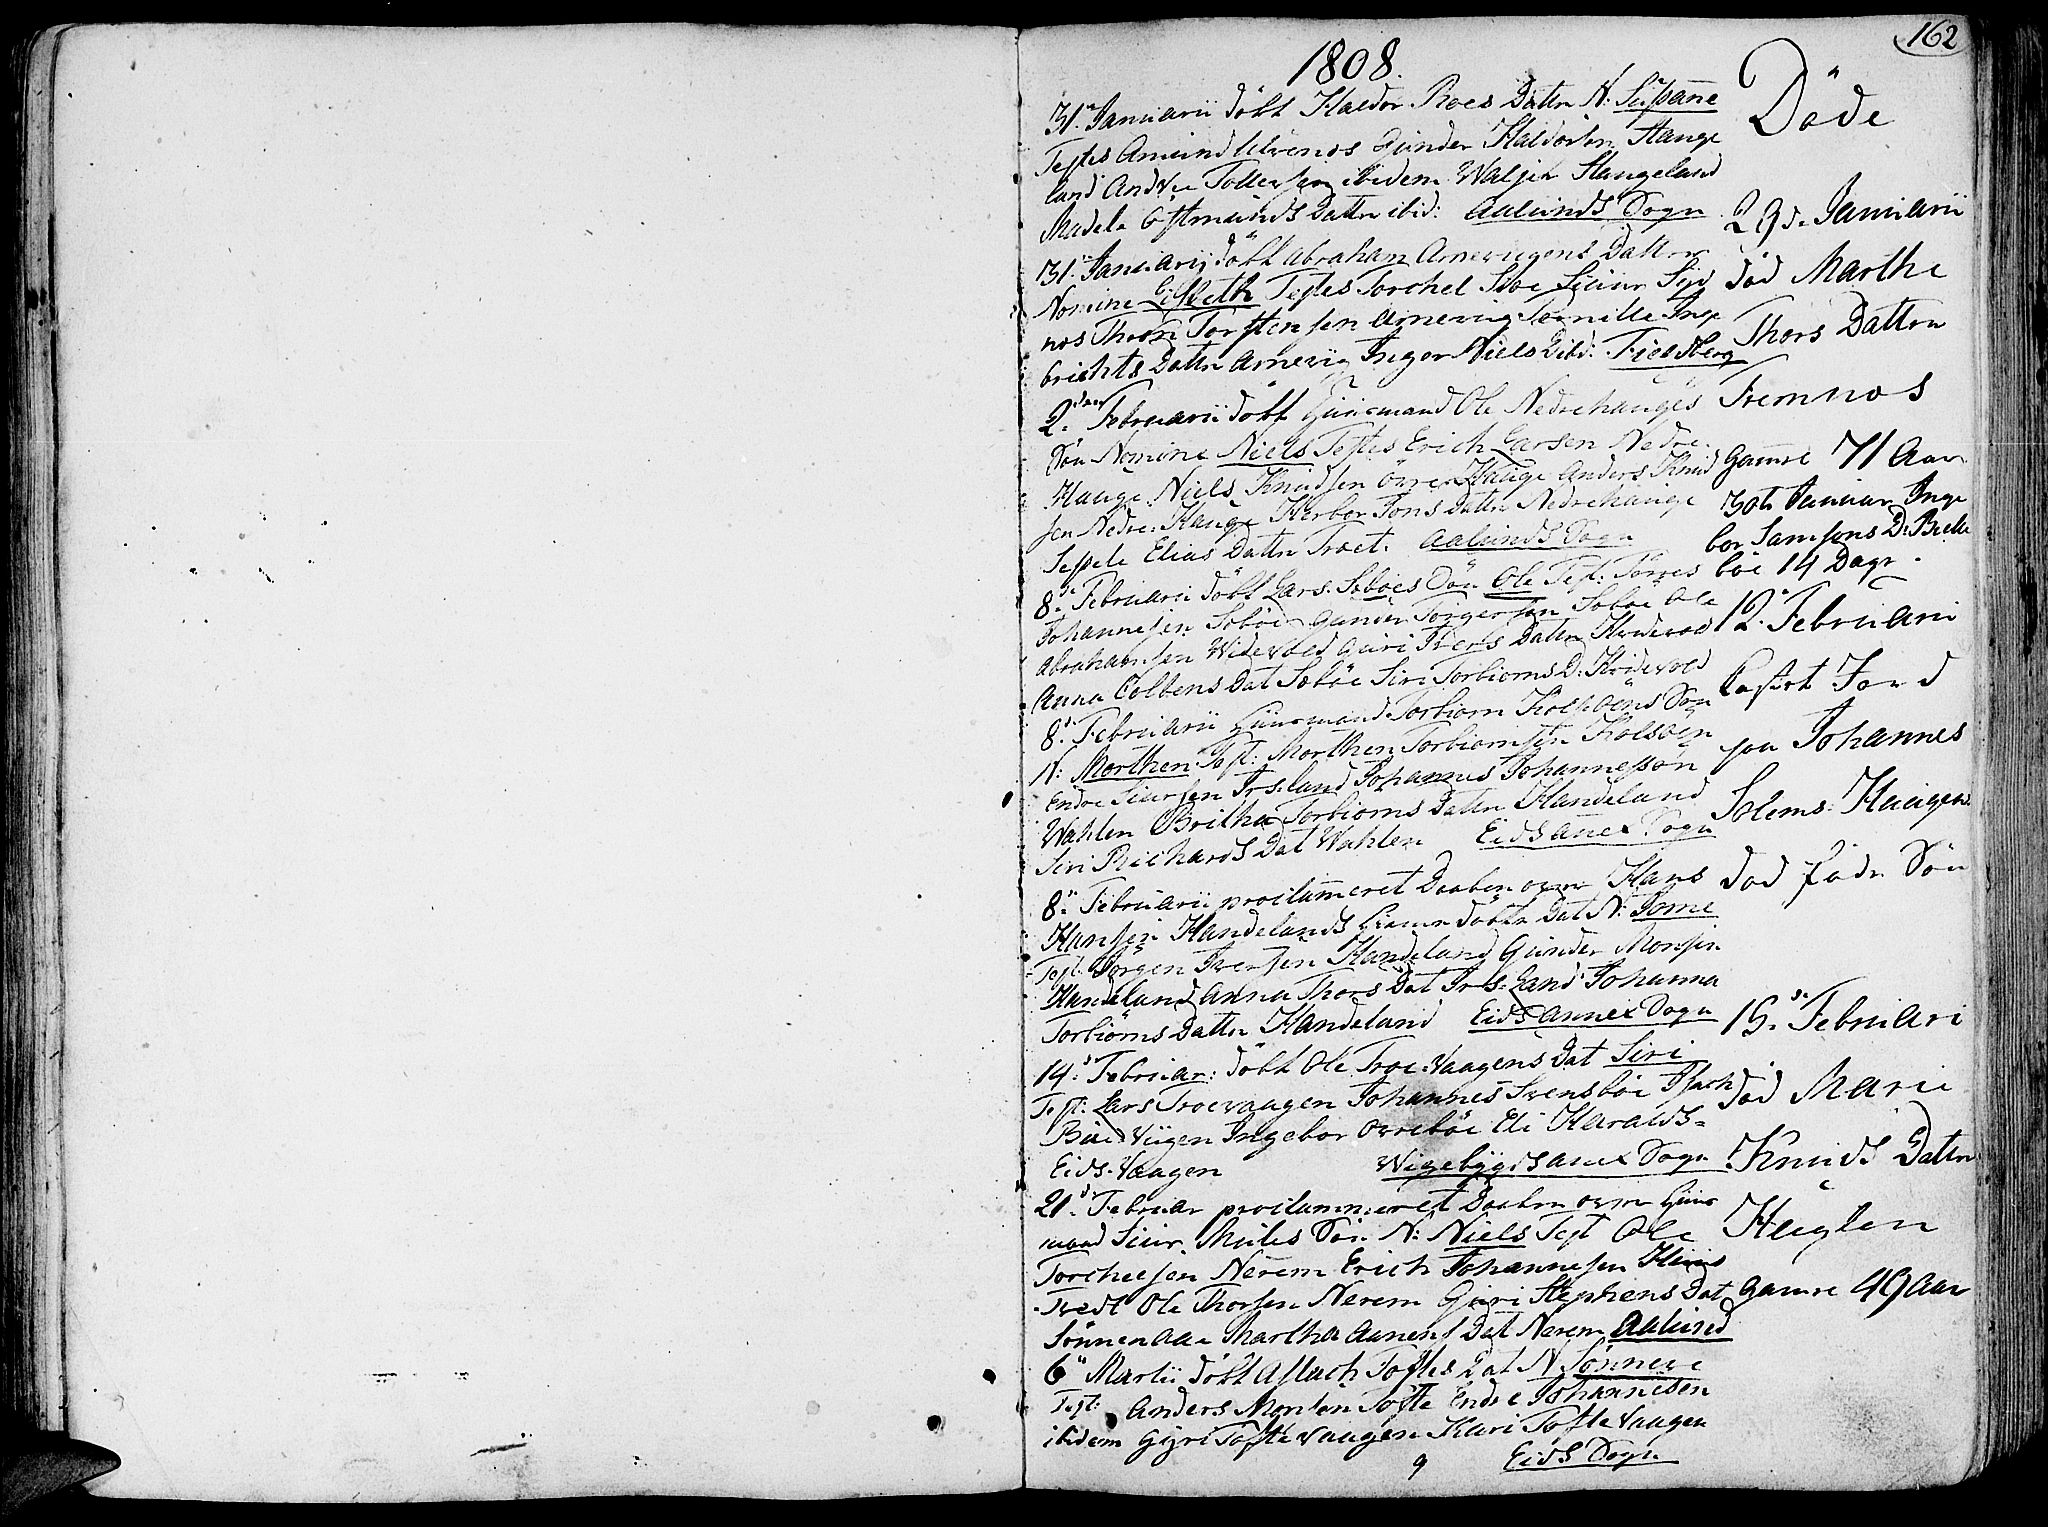 162
1808.
31. Januarii döbt Haldor Roes Dattr N: Susanne
Testes Amund Gunder Haldorsen Hauge
land Andve Tollevsen ibidem Haugeland
Madele Östmunds Dattr ibid: Aalunds Sogn
31. Januarij döbt Abraham Arnevigens Dattr
Nomine Lisbeth Testes Torchel Siur
nos Thore Torstensen Arnevig Pernille Inge
brichts Dattr Arnevig Inger Niels D ibd: Fieldberg
2. Februarii döbt Huusmand Ole Nedrehauges
Sön Nomine Niels Testes Erich Larsen Nedre
Hauge Niels Knudsen Övre Hauge Anders Knud
sen Nedre Hauge Herbor Jons Dattr Nedrehauge
Sessele Elias Dattr Troet. Aalunds Sogn
8. Februarii döbt Lars Söböes Sön Ole Test: Törres
Johannesen Söböe Gunder Torgersen Söböe Ole
Abrahamsen Widevold Guri Ivers Dattr Hvidevold
Anna Colbens Dat Söböe Siri Torbiorns D: Hvidevold
8. Februarii Huusmand Torbiorn Kolsöens Sön
N: Morthen Test: Morthen Torbiornsen Kolsöen
Endre Siursen Irsland Johannes Johannessön
Wahlen Britha Torbiorns Dattr Handeland
Siri Richards Dat Wahlen Eids anex Sogn
8. Februarii proclameret Daaben over Hans
Hansen Handelands hiemedöbte Dat N:
Test Jörgen Iversen Handeland Gunder Monsen
Handeland Anna Thors Dat Irsland Johanna
Torbiörns Dattr Handeland Eids Annex Sogn
14. Februar: döbt Ole Troe-Vaagens Dat Siri
Test: Lars Troevaagen Johannes Svensböe Isach
Böe-Viigen Ingebor Ovreböe Eli Haralds=
Eids-Vaagen Wigebÿgds anex Sogn
21. Februar proclammeret Daaben over Huus
mand Siur Mules Sön N: Niels Test Ole
Torchelsen Nerem Erich Johannesen
Tvedt Ole Thorsen Nerem Guri Stephens Dat
Sönnenaae Martha Dat Nerem Aalund
6 Martii döbt Aslach Toftes Dat N Sönneve
Test: Anders Monsen Tofte Endre Johannesen
ibidem Gyri Toftevaagen Kari Toftevaagen
9 Eids Sogn
Döde
29d. Januarii
död Marthe
Thors Dattr
Fremnos
gamre 71 Aar
30te Januar Inge
bor Samsons D:
böe 14 Dage
12. Februarii
kastet Jord
paa Johannes
Solems-Haugens
död föde Sön
15. Februari
död Marie
Knuds Dattr
Heglen
gamre 49 Aar